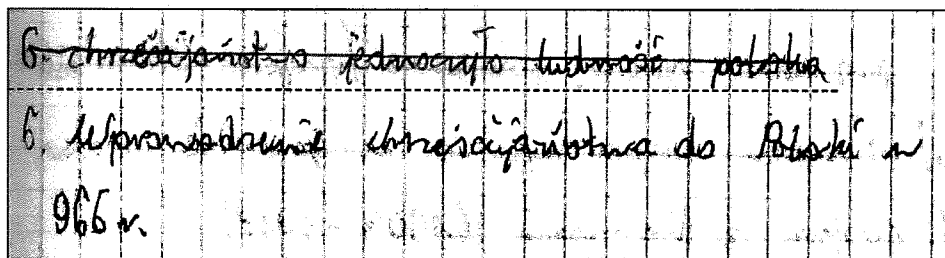 6. chrześcijaństwo jednoczyło ludność polska
6. Wprowadzenie chrześcijaństwa do Polski w
966 r.